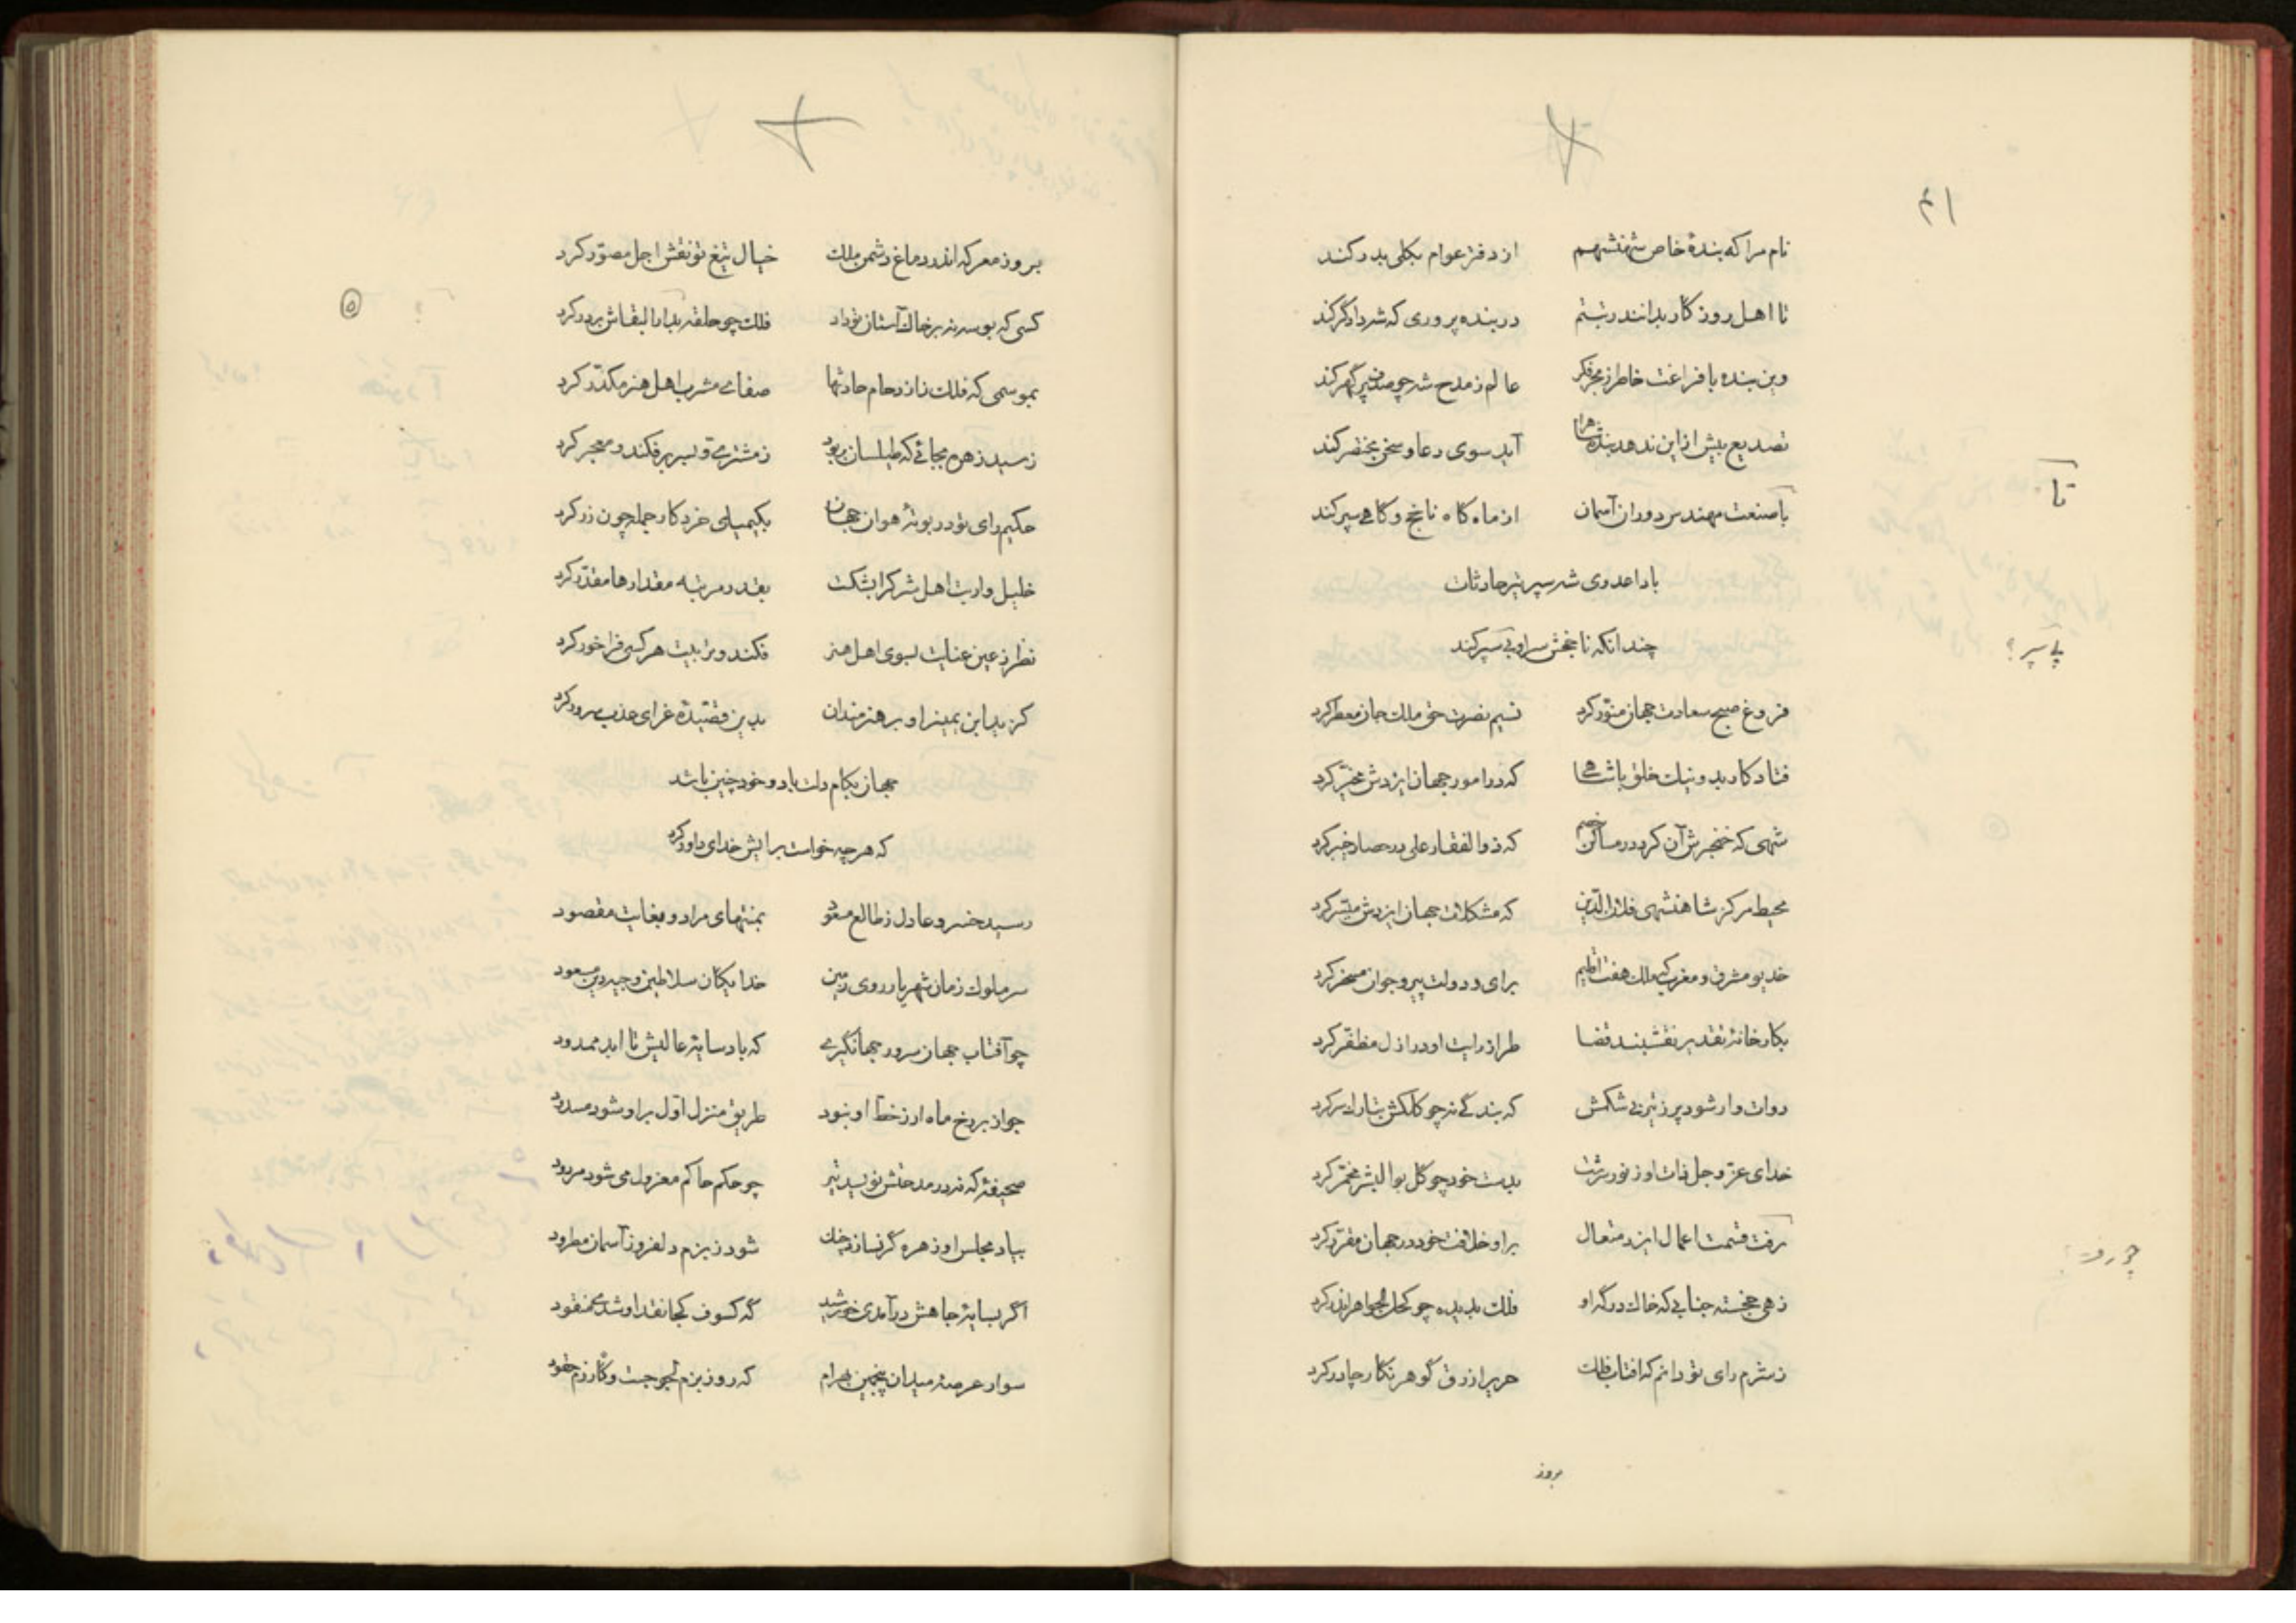 ۴۱
نام مرا که بندهٔ خاص شهنشهم از دفتر عوام بکلی بدر کند
تا اهل روزگار بدانند رتبتم در بنده پروری که شه دادگر کند
وین بنده با فراغت خاطر ز بحر فکر عالم ز مدح شه چو صدف پر گهر کند
تصدیع بیش ازین ندهد بنده شاه را آید سوی دعا و سخن مختصر کند
تا
با صنعت مهندس دوران آسمان از ماه گاه ناخج و گاهی سپر کند
بادا عدوی شه سپر تیر حادثات
چندانکه ناخجش سر او پی سپر کند
پی سپر؟
فروغ صبح سعادت جهان منوّر کرد نسیم نصرت حق ملک جان معطر کرد
فتاد کار بد و نیک خلق با شاهی که در امور جهان ایزدش مخیّر کرد
شهی که خنجرش آن کرد در مساکن خصم که ذوالفقار علی در حصار خیبر کرد
محیط مرکز شاهنشهی فلان الدّین که مشکلات جهان ایزدش میسّر کرد
خدیو مشرق و مغرب که ملک هفت اقلیم برای و دولت پیر و جوان مسخر کرد
بکارخانهٔ تقدیر نقشبند قضا طراز رایت او در ازل مظفّر کرد
دوات وار شود پر ز تیرگی شکمش که بندگی نه چو کلکش بتارک سر کرد
خدای عزّ و جل ذات او ز نور سرشت بدست خود چو گل بوالبشر مخمّر کرد
برفت قسمت اعمال ایزد متعال برو خلافت خود در جهان مقرّر کرد
زهی خجسته جنابی که خاک درگه او فلک بدیده چو کحل الجواهر اندر کرد
ز شرم رای تو دانم که افتاب فلک حریر ازرق گوهر نگار چادر کرد
بروز
بروز معرکه اندر دماغ دشمن ملک خیال تیغ تو نقش اجل مصوّر کرد
۵
کسی که بوسه نه بر خاک آستان تو داد فلک چو حلقه بدار البقاش بر در کرد
بموسمی که فلک از زدحام حادثها صفای مشرب اهل هنر مکدّر کرد
رسید زهره بجائی که طیلسان بربود ز مشتری و بسر بر فکند و معجر کرد
حکیم رای تو در بوتهٔ هوان جهان بکیمیای خرد کار جمله چون زر کرد
خلیل وار بت اهل شرک را بشکست بقدر مرتبه مقدارها مقدّر کرد
نظر ز عین عنایت بسوی اهل هنر فکند و تربیت هر کسی فراخور کرد
گزید ابن یمینرا و بر هنرمندان بدین قصیدهٔ غرّای عذب سرور کرد
جهان بکام دلت باد و خود چنین باشد
که هر چه خواست برایش خدای داور کرد
رسید خسرو عادل ز طالع مسعود بمنتهای مراد و بغایت مقصود
سر ملوک زمان شهریار روی زمین خدایگان سلاطین وجیه دین مسعود
چو آفتاب جهان سرور جهانگیری که باد سایهٔ عالیش تا ابد ممدود
جواز بر رخ ماه ار ز خط او نبود طریق منزل اوّل برو شود مسدود
صحیفهٔ که نه در مدحتش نویسد تیر چو حکم حاکم معزول می شود مردود
بیاد مجلس او زهره گر نسازد چنگ شود ز بزم دلفروز آسمان مطرود
اگر بسایهٔ جاهش درآمدی خورشید گه کسوف کجا نقد او شدی مفقود
سوار عرصهٔ میدان پنجمین بهرام که روز بزم نجوجست و گاه رزم حقود